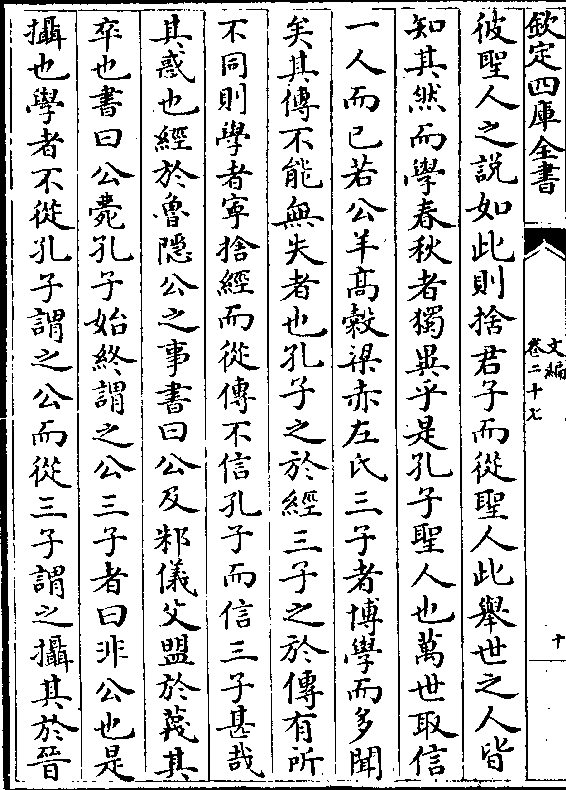 欽定四庫全書
文編
卷二十七
十
彼聖人之說如此則捨君子而從聖人此舉世之人皆
知其然而學春秋者獨異乎是孔子聖人也萬世取信
一人而已若公羊髙榖梁赤左氏三子者博學而多聞
矣其傳不能無失者也孔子之於經三子之於傳有所
不同則學者寜捨經而從傳不信孔子而信三子甚哉
其惑也經於魯隱公之事書曰公及邾儀父盟於蔑其
卒也書曰公薨孔子始終謂之公三子者曰非公也是
攝也學者不從孔子謂之公而從三子謂之攝其於晉